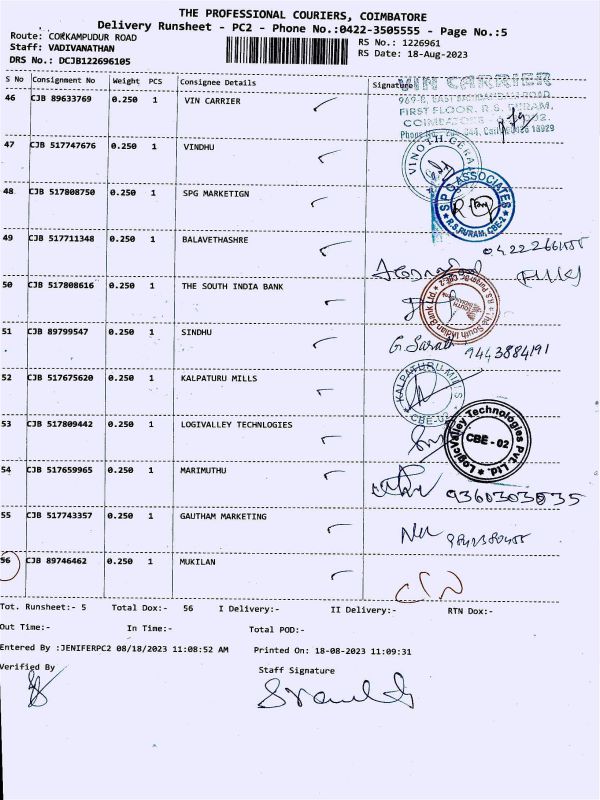 THE PROFESSIONAL COURIERS, COIMBATORE
Delivery Runsheet - PC2 - Phone No.:0422-3505555 - Page No.:5
Route: COKKAMPUDUR ROAD
RS No.: 1226961
Staff: VADIVANATHAN
RS Date: 18-Aug-2023
DRS No.: DCJB122696105
S No Consignment No Weight PCS Consignee Details Signature
46 CJB 89633769 0.250 1 VIN CARRIER
VIN CARRIER
FIRST FLOOR, R.S. PURAM,
47 CJB 517747676 0.250 1 VINDHU
48 CJB 517808750 0.250 1 SPG MARKETIGN
S P G ASSOCIATES
R.S. PURAM, CBE-2
49 CJB 517711348 0.250 1 BALAVETHASHRE
50 CJB 517808616 0.250 1 THE SOUTH INDIA BANK
The South Indian Bank Ltd
51 CJB 89799547 0.250 1 SINDHU
G. Sarath 9443884191
52 CJB 517675620 0.250 1 KALPATURU MILLS
KALPATURU MILLS
CBE-02
53 CJB 517809442 0.250 1 LOGIVALLEY TECHNLOGIES
LogicValley Technologies Pvt. Ltd.
CBE - 02
54 CJB 517659965 0.250 1 MARIMUTHU
9360303035
55 CJB 517743357 0.250 1 GAUTHAM MARKETING
56 CJB 89746462 0.250 1 MUKILAN
Tot. Runsheet:- 5 Total Dox:- 56 I Delivery:- II Delivery:- RTN Dox:-
Out Time:- In Time:- Total POD:-
Entered By :JENIFERPC2 08/18/2023 11:08:52 AM Printed On: 18-08-2023 11:09:31
Verified By Staff Signature